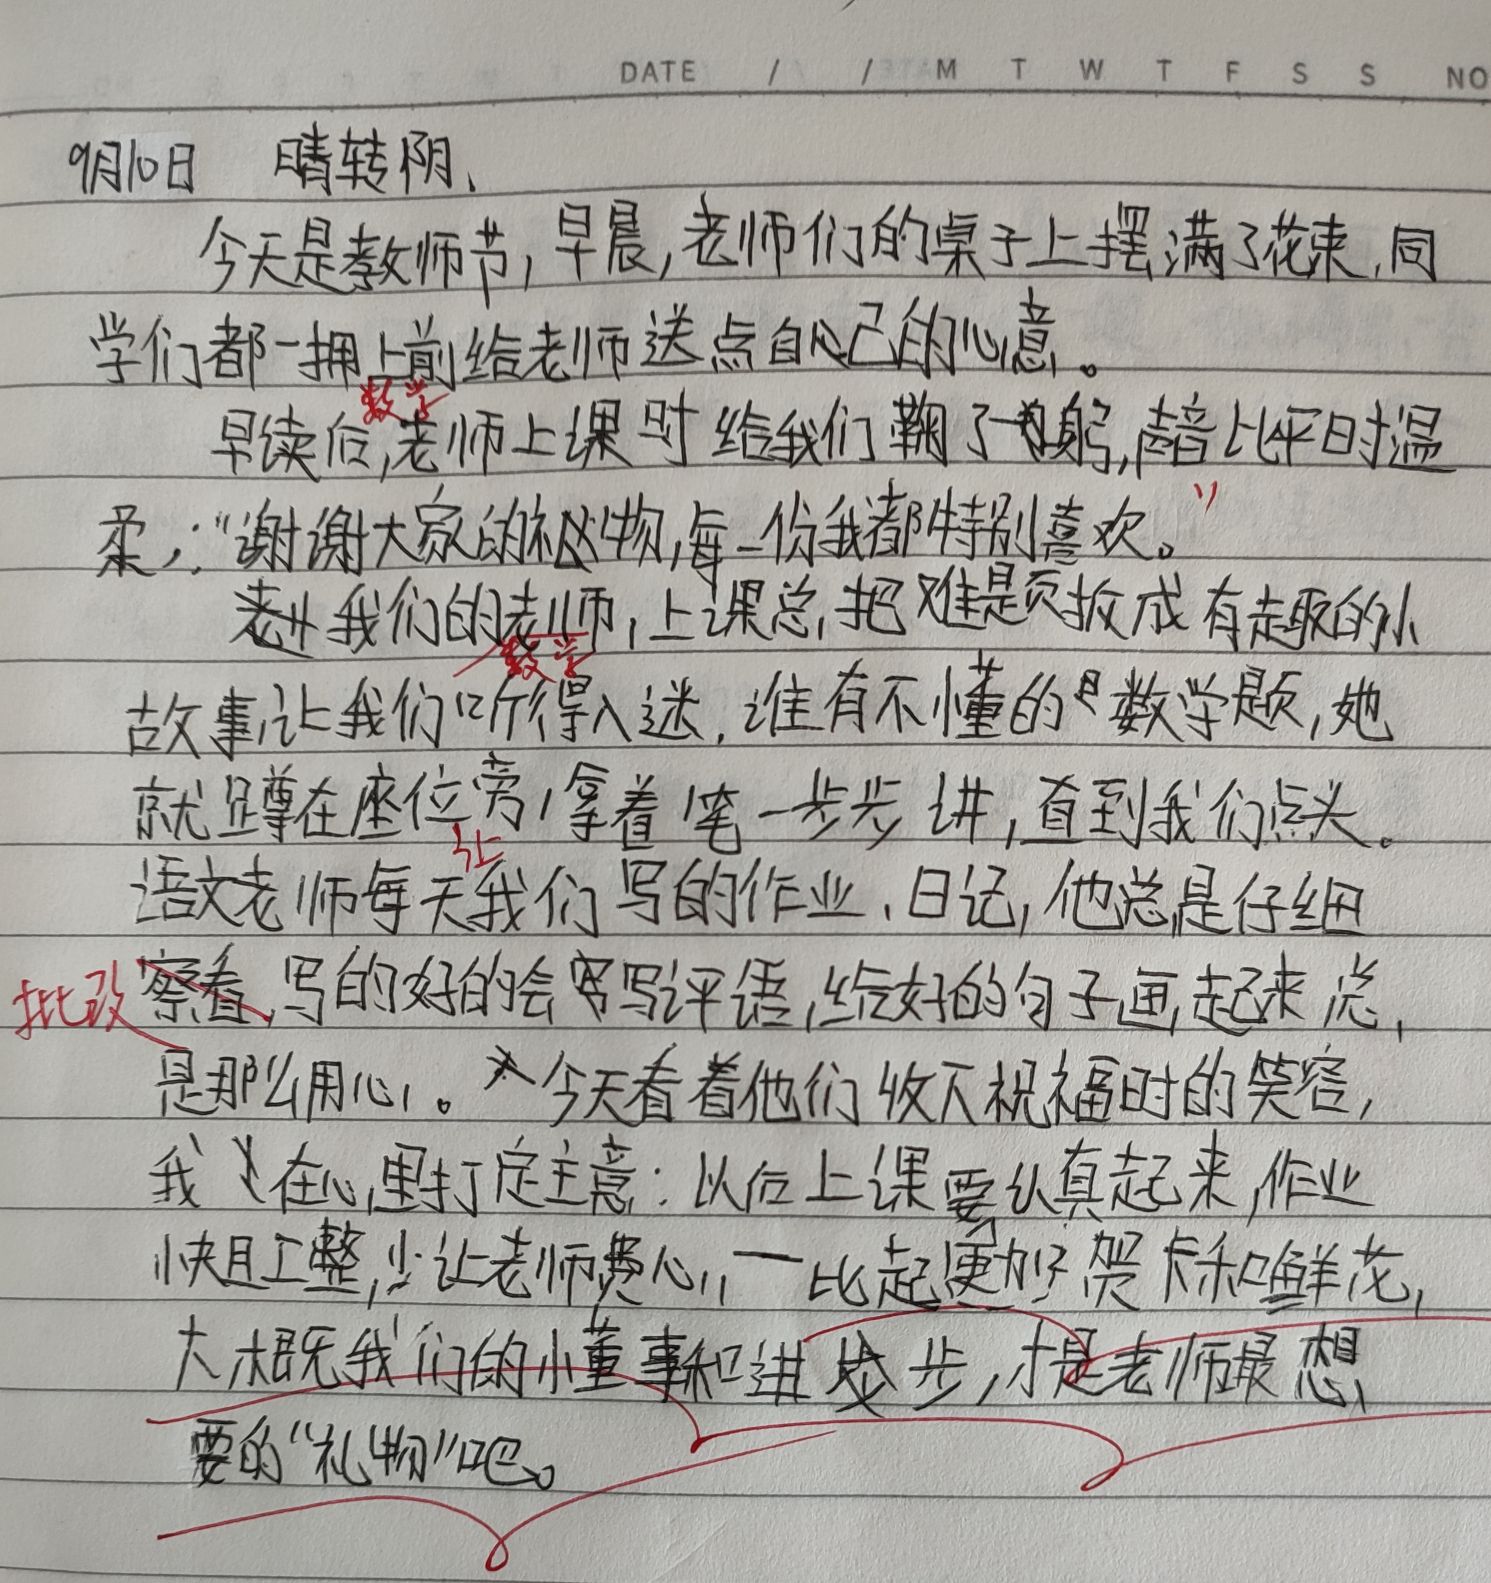 DATE / / M T W T F S S NO
9月10日 晴转阴、
今天是教师节,早晨,老师们的桌子上摆满了花束,同
学们都一拥上前给老师送点自己的心意。
数学
早读后,老师上课时给我们鞠了躬,声音比平日时温
柔,:“谢谢大家的礼物,每一份我都特别喜欢。”
我们的老师,上课总把难题扳成有趣的小
数学
故事,让我们听得入迷,谁有不懂的数学题,她
就蹲在座位旁,拿着笔一步步讲,直到我们点头。
让
语文老师每天我们写的作业、日记,他总是仔细
批改 察看,写的好的会写评语,给好的句子画起来总,
是那么用心。今天看着他们收下祝福时的笑容,
我在心里打定主意:以后上课要认真起来,作业
快且工整,少让老师费心,一比起更加贺卡和鲜花,
大概我们的小董事和进步,才是老师最想
要的“礼物”吧。